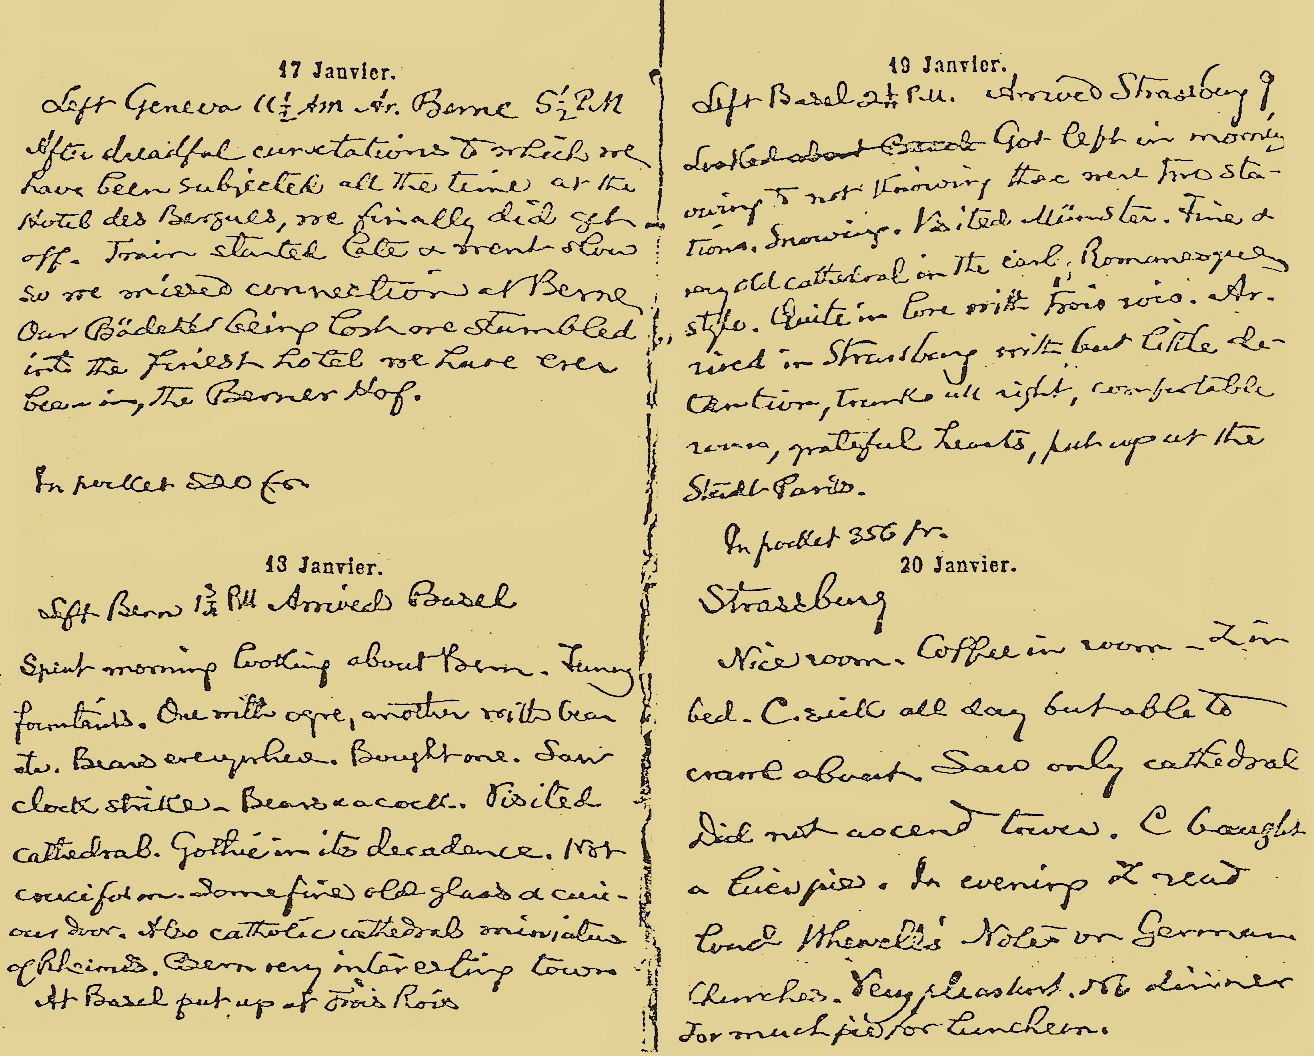 17 Janvier.
Left Geneva 11½ AM Ar. Berne 5½ PM
After dreadful to which we
have been subjected all the time at the
Hotel des Bergues, we finally did get
off. Train started late & went slow
so we missed connection at Berne
Our Bädeker being lost we stumbled
into the finest hotel we have ever
been in, the Berner Hof.
In pocket 520 frs
13 Janvier.
Left Bern 1¾ PM Arrived Basel
Spent morning looking about Bern. Funny
fountains. One with ogre, another with bear
etc. Bears everywhere. Bought one. Saw
clock strike - Bears & a cock. Visited
cathedral. Gothic in its decadence. Not
cruciform. Some fine old glass & curi-
ous door. Also catholic cathedral miniature
of Rheims. Bern very interesting town
At Basel put up at Trois Rois
19 Janvier.
Left Basel 2¼ P.M. Arrived Strassburg 9
Looked about Basel Got left in morning
owing to not knowing there were two sta-
tions. Snowing. Visited Münster. Fine &
very old cathedral in the earl. Romanesque
style. Quite in love with Trois rois. Ar-
rived in Strassburg with but little de-
tention, trunks all right, comfortable
rooms, grateful hearts, put up at the
Stadt Paris.
In pocket 356 fr.
20 Janvier.
Strassburg
Nice room. Coffee in room - Z in
bed. C. sick all day but able to
crawl about. Saw only cathedral
Did not ascend tower. C bought
a pie. In evening Z read
loud Whewell's Notes on German
Churches. Very pleasant. No dinner
Too much pie for luncheon.